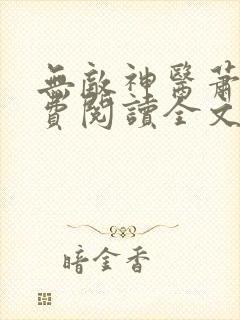 無敵神醫蕭
費閱讀全文
暗金香